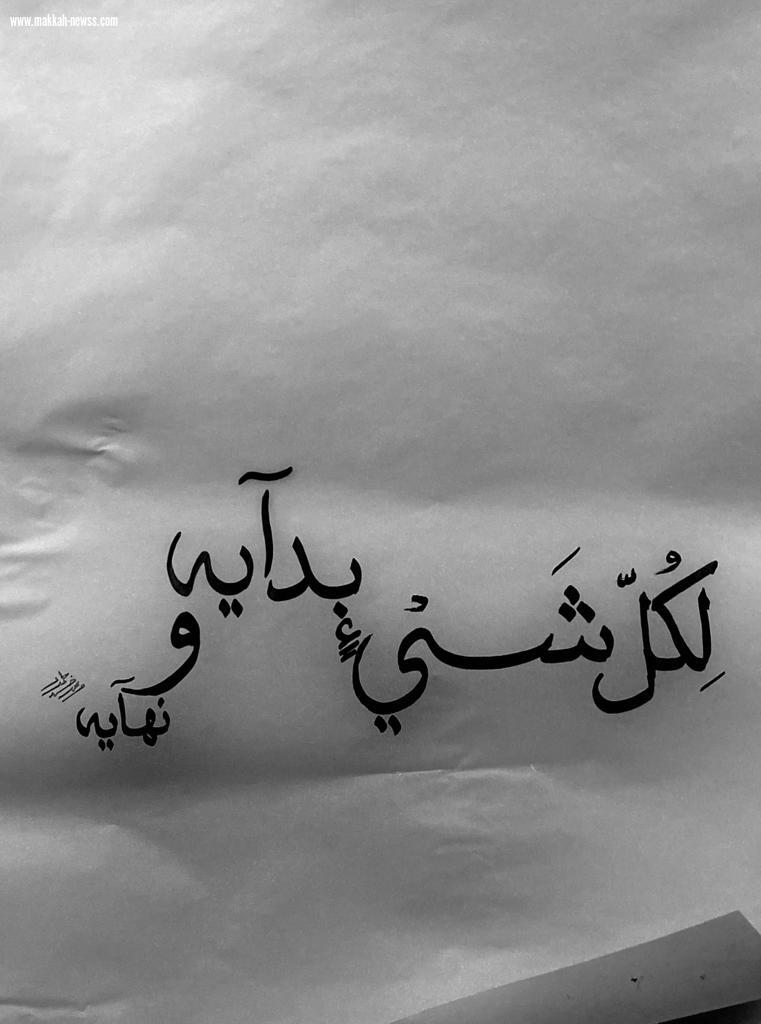 www.makkah-newss.com
لِكُلّ شَيْءٍ بدآيه
و
نهآيه